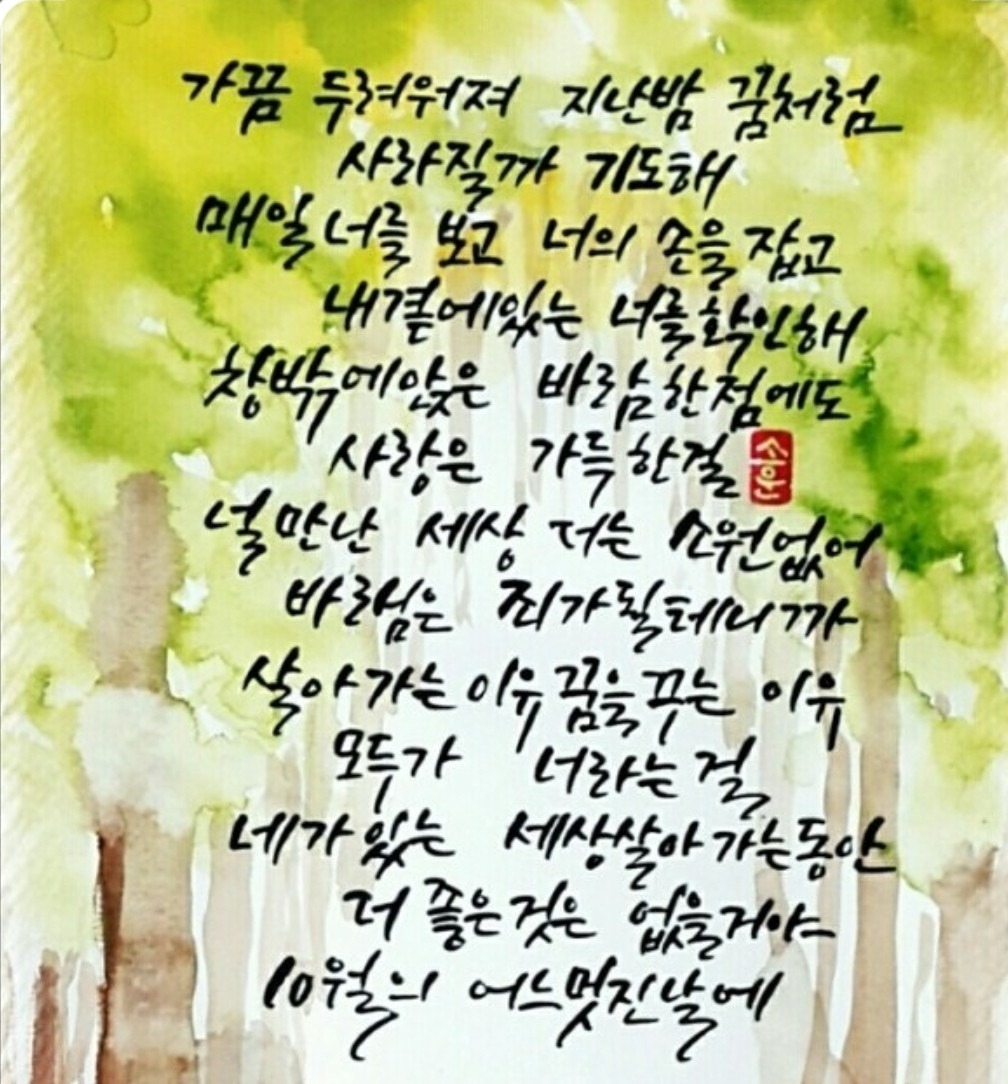 가끔 두려워져 지난밤 꿈처럼
사라질까 기도해
매일 너를 보고 너의 손을 잡고
내곁에있는 너를확인해
창밖에앉은 바람한점에도
사랑은 가득한걸
소운
널만난 세상 더는 소원없어
바램은 죄가될테니까
살아가는이유 꿈을꾸는 이유
모두가 너라는걸
네가있는 세상살아가는동안
더 좋은것은 없을거야
10월의 어느멋진날에